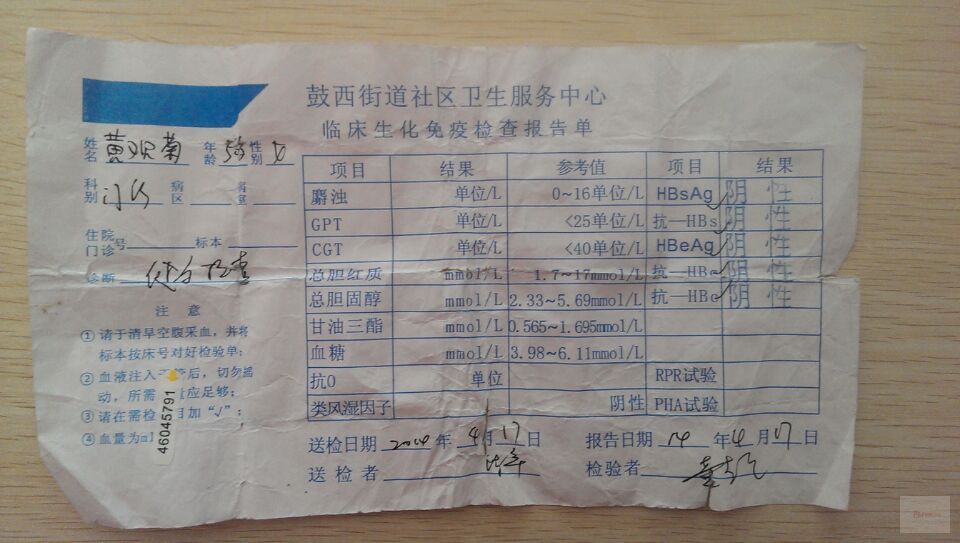 鼓西街道社区卫生服务中心
临床生化免疫检查报告单
姓名 黄观菊 年龄 性别 女
科别 门诊 病区 病室
住院门诊号 标本
诊断 健康检查
注意
①请于清早空腹采血，并将
标本按床号对好检验单；
②血液注入 后，切勿摇
动，所需 量应足够；
③请在需检 目加“√”；
④血量为ml
46045791
项目 结果 参考值 项目 结果
麝浊 单位/L 0~16单位/L HBsAg √ 阴性
GPT 单位/L <25单位/L 抗—HBs √ 阴性
CGT 单位/L <40单位/L HBeAg √ 阴性
总胆红质 mmol/L 1.7~17mmol/L 抗—HBe √ 阴性
总胆固醇 mmol/L 2.33~5.69mmol/L 抗—HBc √ 阴性
甘油三酯 mmol/L 0.565~1.695mmol/L
血糖 mmol/L 3.98~6.11mmol/L
抗O 单位 RPR试验
类风湿因子 阴性 PHA试验
送检日期 2014 年 4 月 17 日 报告日期 14 年 4 月 17 日
送检者 检验者